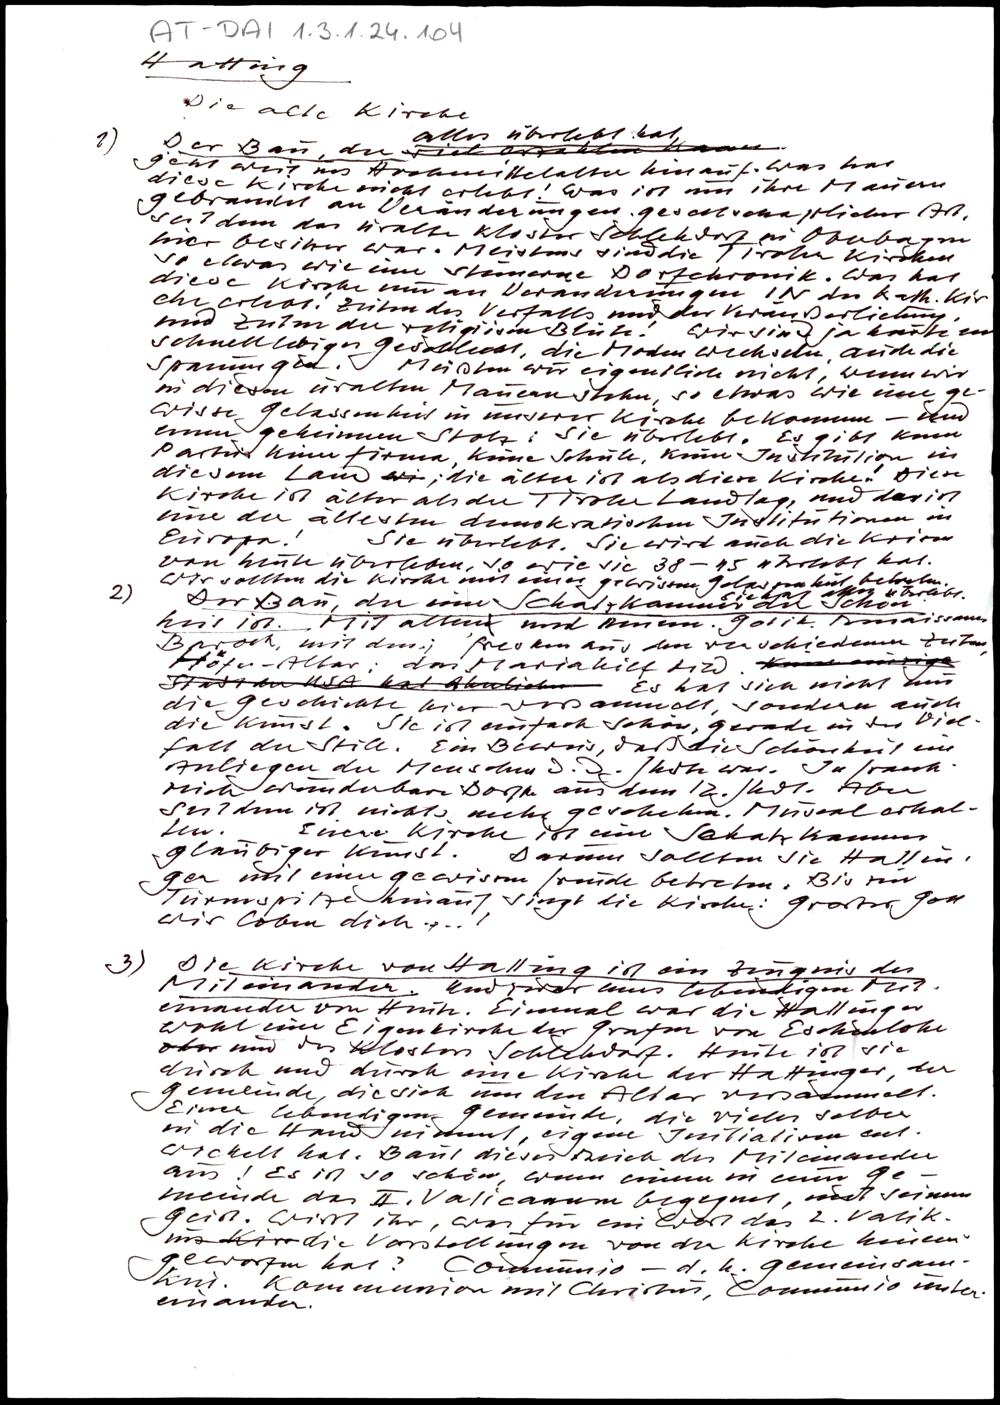 AT-DAI 1.3.1.24.104
Hatting
Die alte Kirche
alles überlebt hat,
1) Der Bau, der viel erzählen kann
geht weit ins Hochmittelalter hinauf. Was hat
diese Kirche nicht erlebt! Was ist um ihre Mauern
gebrandet an Veränderungen gesellschaftlicher Art,
seitdem das uralte Kloster Schlehdorf in Oberbayern
hier Besitzer war. Meistens sind die Tiroler Kirchen
so etwas wie eine steinerne Dorfchronik. Was hat
diese Kirche nun an Veränderungen IN der kath. Kir-
che erlebt! Zeiten des Verfalls und der Veräusserlichung,
und Zeiten der religiösen Blüte! Wir sind ja heute ein
schnelllebiges Geschlecht, die Moden wechseln, auch die
Spannungen. Müßten wir eigentlich nicht, wenn wir
in diesen uralten Mauern stehn, so etwas wie eine ge-
wisse Gelassenheit in unserer Kirche bekommen – und
einen geheimen Stolz: Sie überlebt. Es gibt keine
Partei keine Firma, keine Schule, keine Institution in
diesem Land, die älter ist als diese Kirche! Diese
Kirche ist älter als der Tiroler Landtag, und das ist
eine der ältesten demokratischen Institutionen in
Europa! Sie überlebt. Sie wird auch die Krisen
von heute überleben, so wie sie 38–45 überlebt hat.
Wir sollten die Kirche mit einer gewissen Gelassenheit betreten.
Sie hat alles überlebt.
2) Der Bau, der eine Schatzkammer der Schön
heit ist. Mit altem und neuem. Gotik. Renaissance
Barock, mit den Fresken aus den verschiedenen Zeiten,
Altar: das Mariahilf Bild. Keine einzige
Stadt der USA hat Ähnliches Es hat sich nicht nur
die Geschichte hier versammelt, sondern auch
die Kunst. Sie ist einfach schön, gerade in der Viel-
falt der Stile. Ein Beweis, daß die Schönheit ein
Anliegen der Menschen d. Jhdte war. In Frank-
reich wunderbare Dome aus dem 12. Jhdt. Aber
seitdem ist nichts mehr geschehen. Museal erhal-
ten. Eure Kirche ist eine Schatzkammer
gläubiger Kunst. Darum sollten Sie Hattin-
ger mit einer gewissen Freude betreten. Bis zur
Turmspitze hinauf singt die Kirche: Großer Gott
wir loben dich...!
3) Die Kirche von Hatting ist ein Zeugnis des
Miteinander. Und zwar eines lebendigen Mit-
einander von Heute. Einmal war die Hattinger
wohl eine Eigenkirche der Grafen von Eschenlohe
oder und des Klosters Schlehdorf. Heute ist sie
durch und durch eine Kirche der Hattinger, der
Gemeinde, die sich um den Altar versammelt.
Einer lebendigen Gemeinde, die vieles selber
in die Hand nimmt, eigene Initiativen ent-
wickelt hat. Baut dieses Reich des Miteinander
aus! Es ist so schön, wenn einem in einer Ge-
meinde das II. Vaticanum begegnet, mit seinem
Geist. Wisst ihr, was für ein Wort das 2. Vatik-
in die Vorstellungen von der Kirche hinein-
geworfen hat? Communio – d.h. Gemeinsam-
keit. Kommunion mit Christus, Communio unter-
einander.